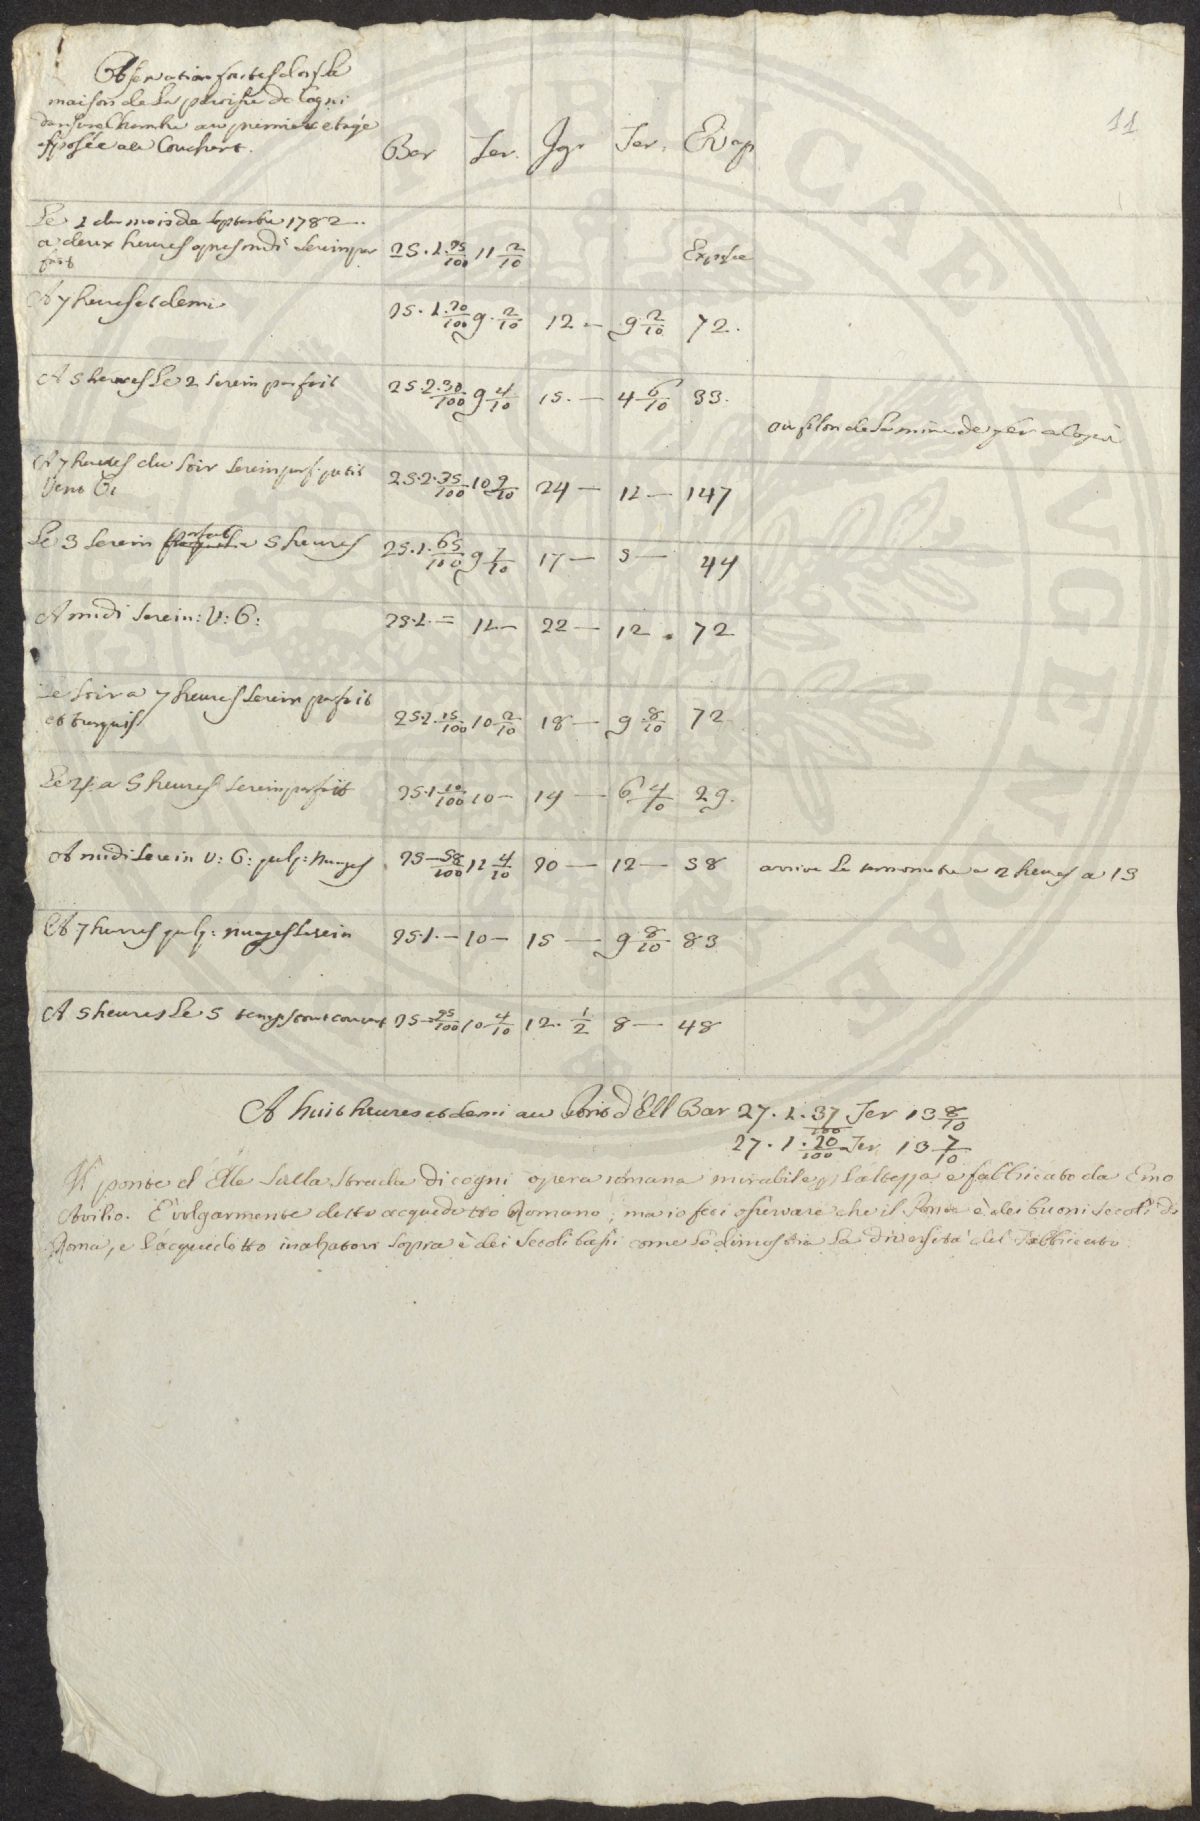 11
Observation faites dans la
maison de la paroisse de Cogni
dans une Chambre au premier etage
esposée au Couchant.
Bar Ter. Igr Ter. Evap
Le 1 du mois de septembre 1782
a deux heures apres midi Serein par
fait 25. 1. 95/100 11 2/10 Exposée
A 7 heures et demi 25. 1. 70/100 9. 2/10 12 — 9 2/10 72.
A 5 heures Le 2 Serein parfait 25. 2. 30/100 9 4/10 15. — 4 6/10 33.
au filon de la mine de fer a Cogni
A 7 heures du Soir Serein parf. petit
Vent 25. 2. 35/100 10 9/10 24 — 12 — 147
Le 3 Serein parfait a 5 heures 25. 1. 65/100 9 7/10 17 — 5 — 44
A midi Serein: V: G: 25. 1. = 12 — 22 — 12. 72
Le Soir a 7 heures Serein parfait
et tranquil 25. 1. 15/100 10 2/10 18 — 9 8/10 72
Le 4 a 5 heures Serein parfait 25. 1 10/100 10 — 14 — 6 4/10 29.
A midi Serein V: G: quelq: Nuages 25 — 58/100 12 4/10 20 — 12 — 58 arrive Le termometre a 2 heures a 13
A 7 heures quelq: Nuages Serein 25. 1. — 10 — 15 — 9 8/10 83
A 5 heures Le 5 temps tout couvert 25 — 95/100 10 4/10 12. 1/2 8 — 48
A huit heures et demi au Pont d'Ell Bar 27. 1. 37/100 Ter 13 8/10
27. 1. 20/100 Ter. 13 7/10
Il ponte d'Elle sulla Strada di cogni opera romana mirabile p l'altezza, e fabbricato da Emo
Avilio. E' volgarmente detto acquedotto Romano; ma io feci osservare che il Ponte è dei buoni secoli di
Roma, e l'acquedotto inalzatovi sopra è dei Secoli bassi come lo dimostra la diversità del Fabbricato.